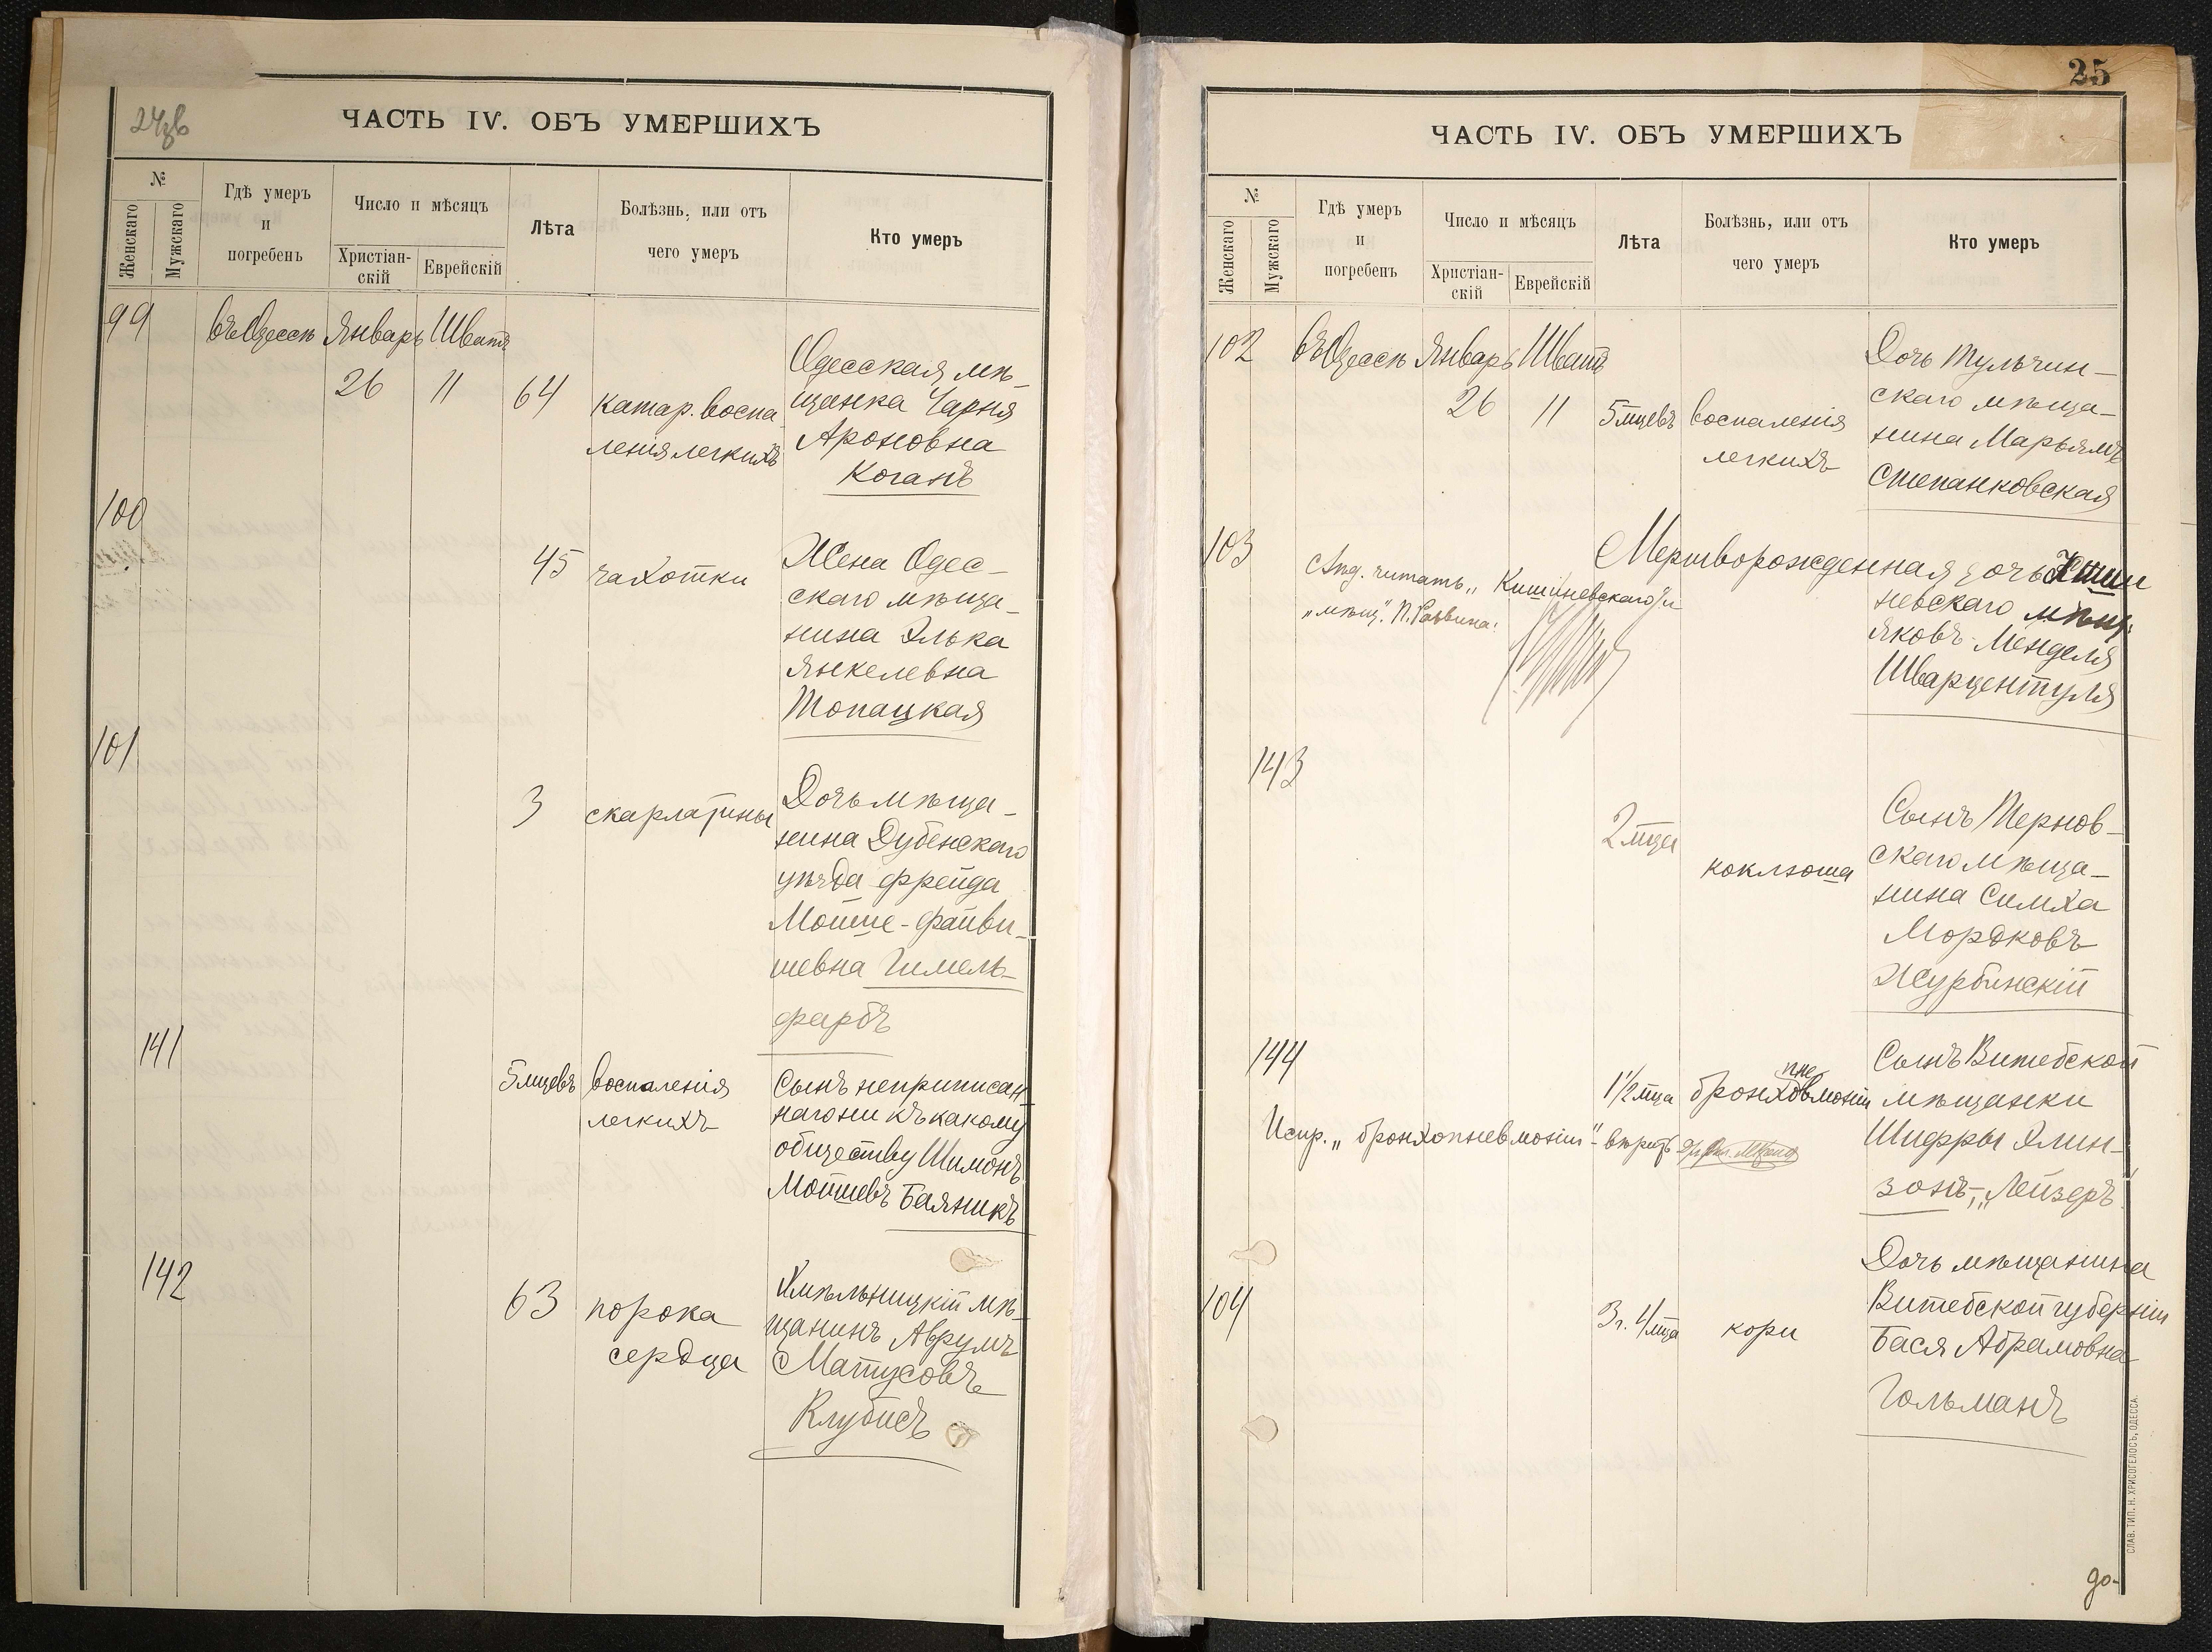 24об
ЧАСТЬ IV. ОБЪ УМЕРШИХЪ
№
Женскаго
Мужскаго
Гдѣ умеръ
и
погребенъ
Число и мѣсяцъ
Христіан-
скій
Еврейскій
Лѣта
Болѣзнь, или отъ
чего умеръ
Кто умеръ
99 въ Одессѣ Январь Шватъ
26 11 64
катар. воспа
ленія легкихъ
Одесская мѣ-
щанка Чарня
Ароновна
Коганъ
100
45 чахотки
Жена Одес-
скаго мѣща-
нина Элька
Янкелевна
Топацкая
101
3 скарлатины
Дочь мѣща-
нина Дубенскаго
уѣзда Фрейда
Мойше-Файви-
шевна Гимель-
фарбъ
141
5 мцевъ воспаленія
легкихъ
Сынъ неприписан-
наго ни къ какому
обществу Шимонъ
Мойшевъ Баяникъ
142
63 порока
сердца
Хмѣльницкій мѣ-
щанинъ Аврумъ
Матусовъ
Клубисъ
25
ЧАСТЬ IV. ОБЪ УМЕРШИХЪ
№
Женскаго
Мужскаго
Гдѣ умеръ
и
погребенъ
Число и мѣсяцъ
Христіан-
скій
Еврейскій
Лѣта
Болѣзнь, или отъ
чего умеръ
Кто умеръ
102 въ Одессѣ Январь Шватъ
26 11 5 мцевъ
воспаленія
легкихъ
Дочь Тульчин-
скаго мѣща-
нина Марьямъ
Степанковская
103
Мертворожденная дочь Киши
невскаго мѣщ.
Яковъ-Менделя
Шварцентуля
Слѣд. читать „Кишиневскаго" и
„мѣщ." П. Раввина:
143
2 мца
коклюша
Сынъ Тернов-
скаго мѣща-
нина Симха
Мордковъ
Журбинскій
144
1½ мца
пне
бронховмоніи
Сынъ Витебской
мѣщанки
Шифры Элин-
зонъ-„Лейзеръ"
Испр. „бронхопневмоніи"- вѣрить
104
3 г. 4 мца кори
Дочь мѣщанина
Витебской губерніи
Бася Абрамовна
Гольманъ
СЛАВ. ТИП. Н. ХРИСОГЕЛОСЪ, ОДЕССА.
до-